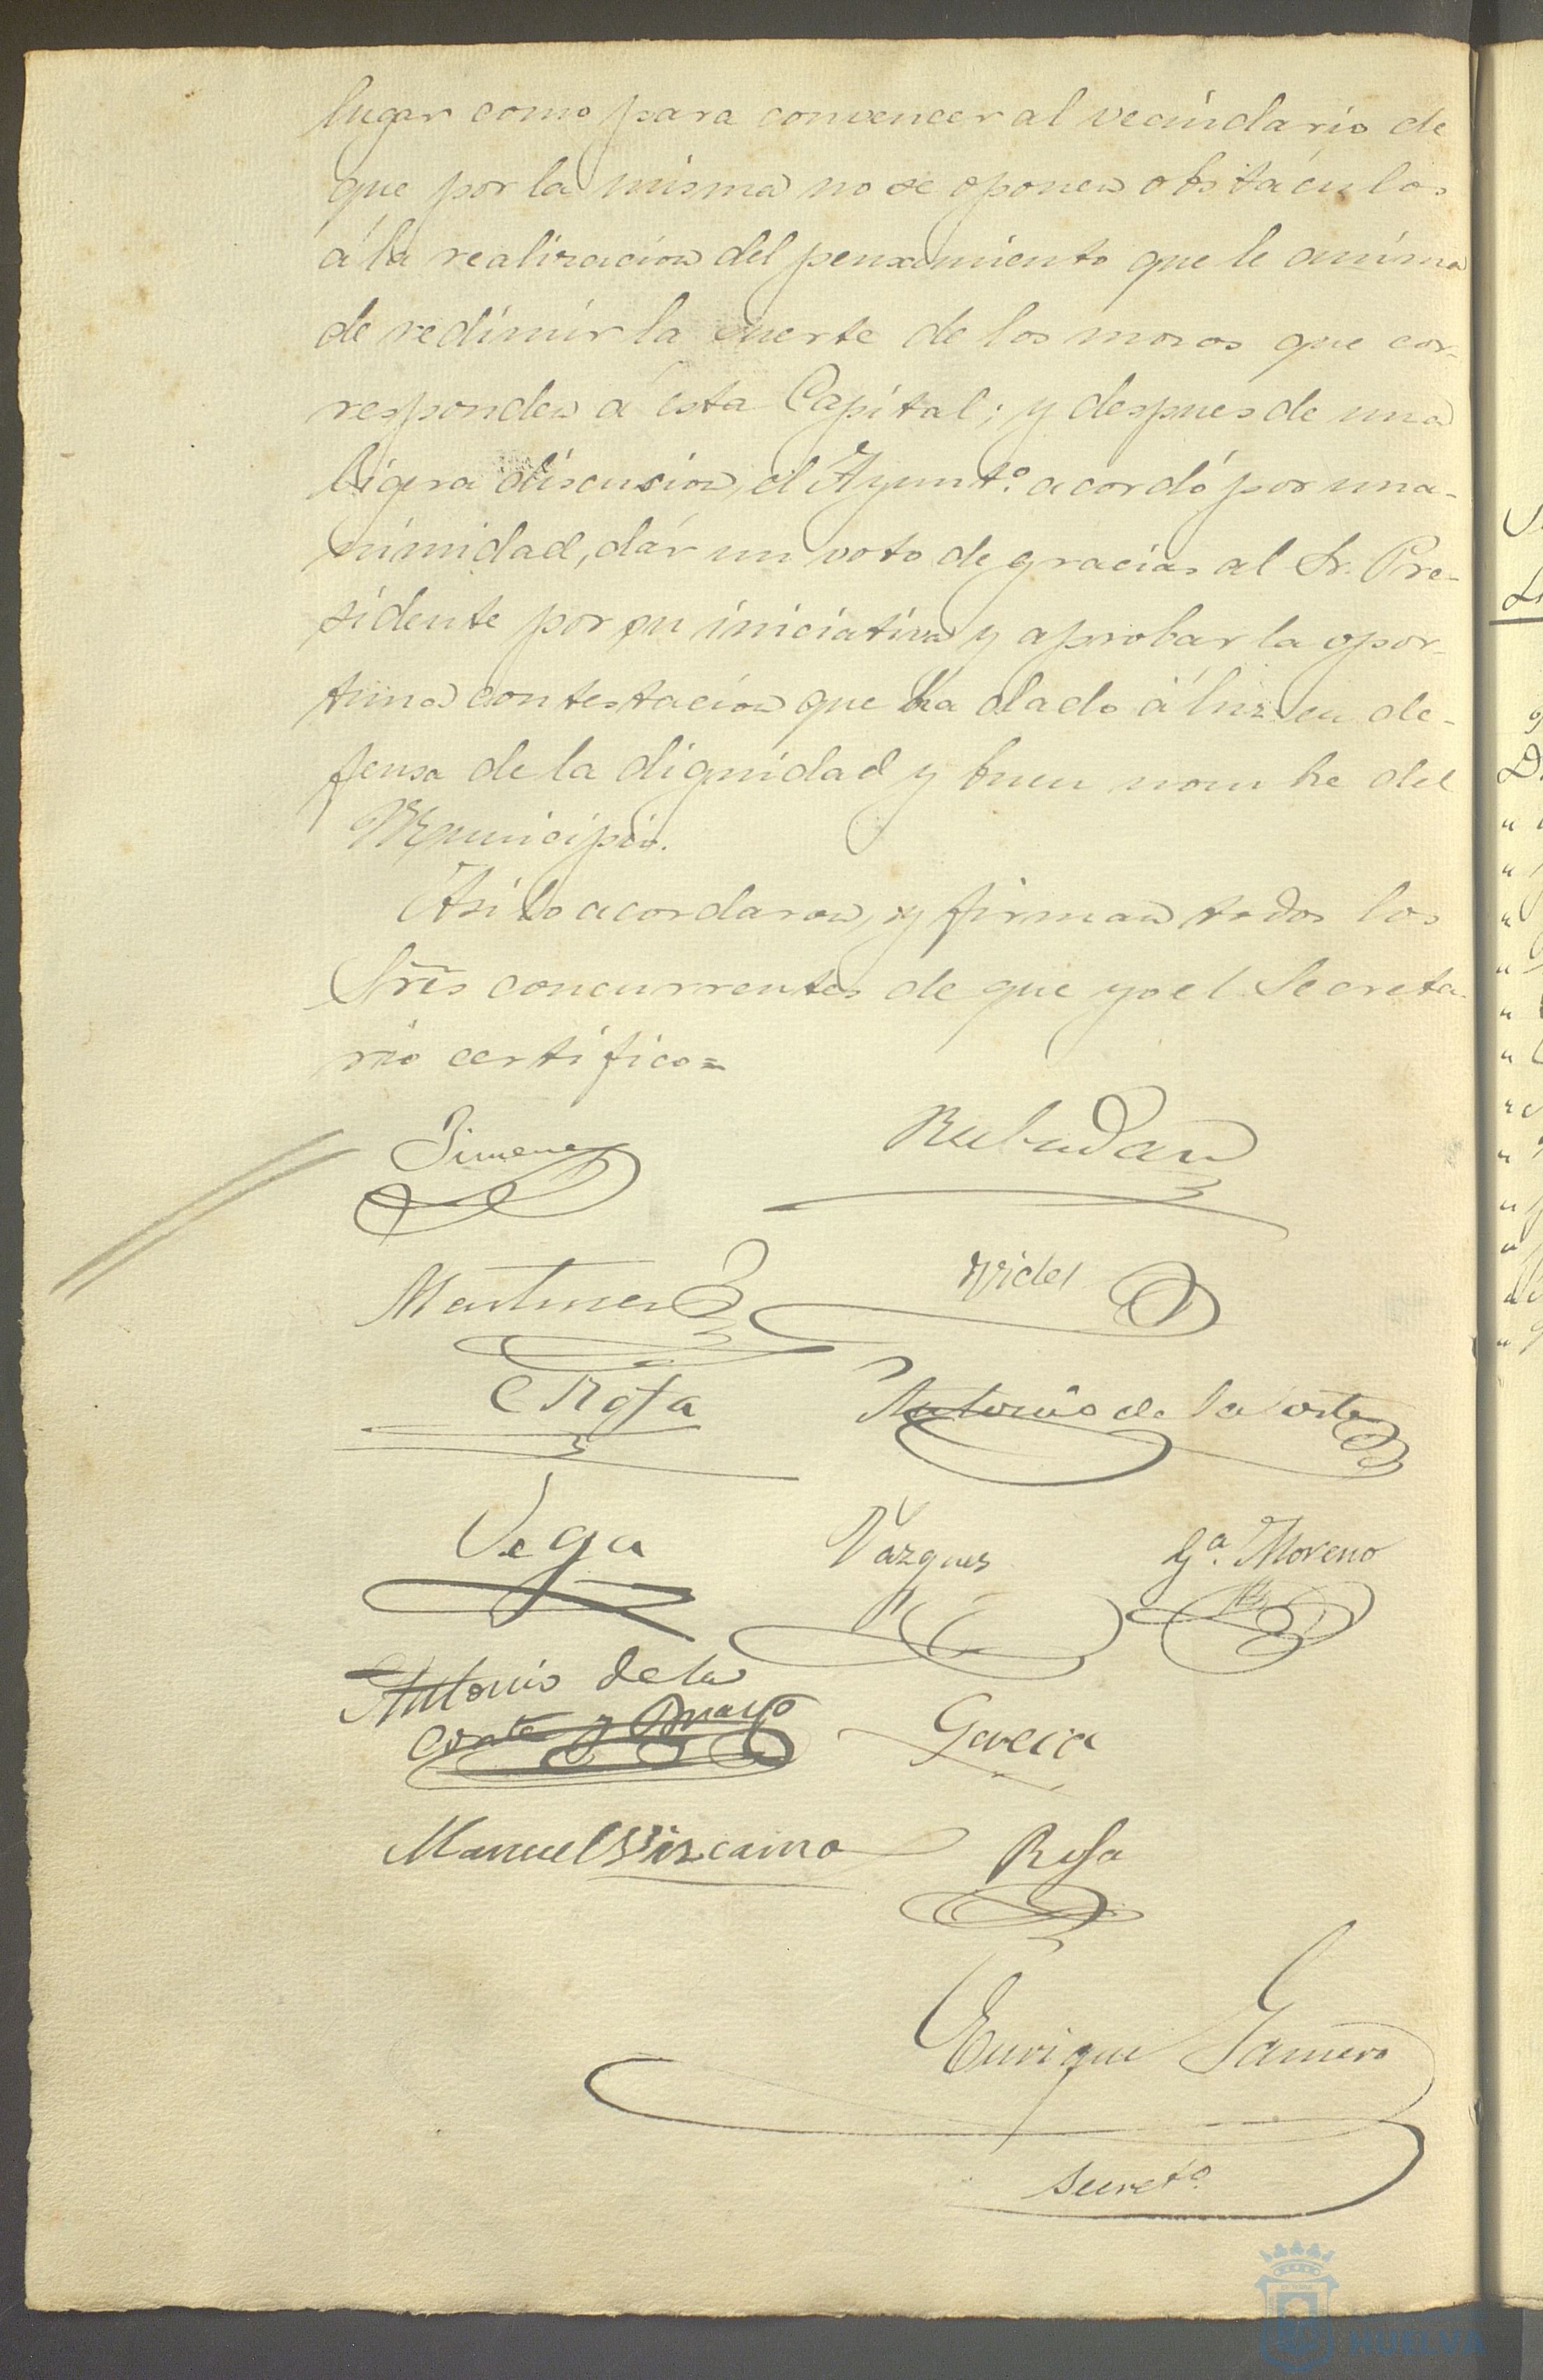 lugar como para convencer al vecindario de
que por la misma no se oponen obstáculos
á la realizacion del pensamiento que le anima
de redimir la suerte de los mozos que cor-
responden á esta Capital; y despues de una
ligera discusion, el Ayunt.º acordó por una-
nimidad, dár un voto de gracias al Sr. Pre-
sidente por su iniciativa y aprobar la opor-
tuna contestacion que ha dado á luz en de-
fensa de la dignidad y buen nombre del
Municipio.
Asi lo acordaron, y firman todos los
Sres concurrentes de que yo el Secreta-
rio certifico=
Jimenez
Martinez Vides
C Rosa Antonio de la Corte
Vega Vazquez Gª. Moreno
Antonio de la
Corte y Garcia
Manuel Vizcaino Rosa
Enrique Gamero
Secretº.
HUELVA